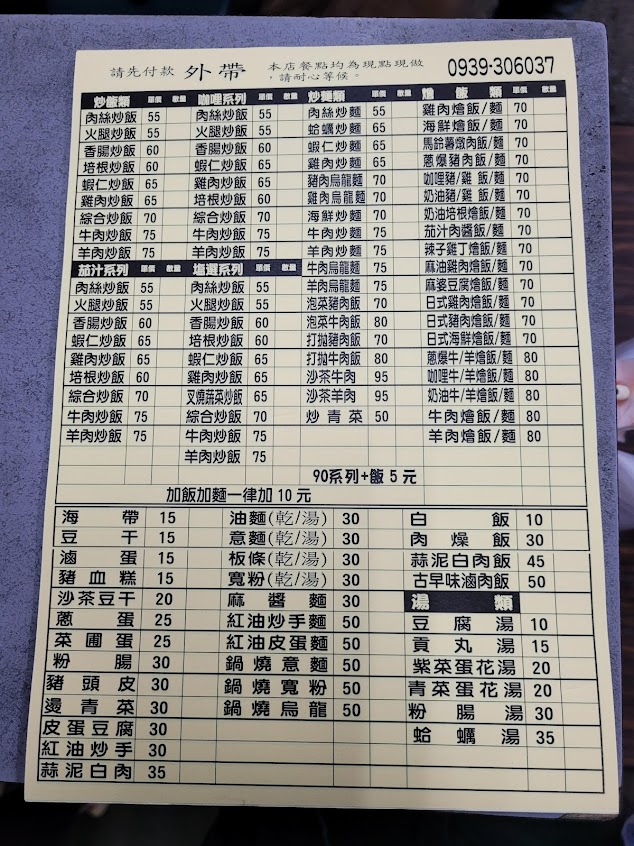 請先付款 外帶 本店餐點均為現點現做，請耐心等候。 0939-306037
炒飯類 單價 數量
肉絲炒飯 55
火腿炒飯 55
香腸炒飯 60
培根炒飯 60
蝦仁炒飯 65
雞肉炒飯 65
綜合炒飯 70
牛肉炒飯 75
羊肉炒飯 75
茄汁系列 單價 數量
肉絲炒飯 55
火腿炒飯 55
香腸炒飯 60
蝦仁炒飯 65
雞肉炒飯 60
培根炒飯 60
綜合炒飯 70
牛肉炒飯 75
羊肉炒飯 75
咖哩系列 單價 數量
肉絲炒飯 55
火腿炒飯 55
香腸炒飯 60
蝦仁炒飯 65
雞肉炒飯 65
培根炒飯 60
綜合炒飯 70
牛肉炒飯 75
羊肉炒飯 75
系列 單價 數量
肉絲炒飯 55
火腿炒飯 55
香腸炒飯 60
培根炒飯 60
蝦仁炒飯 65
雞肉炒飯 65
叉燒蔬菜炒飯 65
綜合炒飯 70
牛肉炒飯 75
羊肉炒飯 75
炒麵類 單價 數量
肉絲炒麵 55
蛤蠣炒麵 65
蝦仁炒麵 65
雞肉炒麵 65
豬肉烏龍麵 70
雞肉烏龍麵 70
海鮮炒麵 70
牛肉炒麵 75
羊肉炒麵 75
牛肉烏龍麵 75
羊肉烏龍麵 75
泡菜豬肉飯 70
泡菜牛肉飯 80
打拋豬肉飯 70
打拋牛肉飯 80
沙茶牛肉 95
沙茶羊肉 95
炒青菜 50
燴飯類 單價 數量
雞肉燴飯/麵 70
海鮮燴飯/麵 70
馬鈴薯燉肉飯/麵 70
蔥爆豬肉飯/麵 70
咖哩豬/雞 飯/麵 70
奶油豬/雞 飯/麵 70
奶油培根燴飯/麵 70
茄汁肉醬飯/麵 70
辣子雞丁燴飯/麵 70
麻油雞肉燴飯/麵 70
麻婆豆腐燴飯/麵 70
日式雞肉燴飯/麵 70
日式豬肉燴飯/麵 70
日式海鮮燴飯/麵 70
蔥爆牛/羊燴飯/麵 80
咖哩牛/羊燴飯/麵 80
奶油牛/羊燴飯/麵 80
牛肉燴飯/麵 80
羊肉燴飯/麵 80
90系列+飯 5 元
加飯加麵一律加 10 元
海帶 15
豆干 15
滷蛋 15
豬血糕 15
沙茶豆干 20
蔥蛋 25
菜圃蛋 25
粉腸 30
豬頭皮 30
燙青菜 30
皮蛋豆腐 30
紅油炒手 30
蒜泥白肉 35
油麵(乾/湯) 30
意麵(乾/湯) 30
板條(乾/湯) 30
寬粉(乾/湯) 30
麻醬麵 30
紅油炒手麵 50
紅油皮蛋麵 50
鍋燒意麵 50
鍋燒寬粉 50
鍋燒烏龍 50
白飯 10
肉燥飯 30
蒜泥白肉飯 45
古早味滷肉飯 50
湯類
豆腐湯 10
貢丸湯 15
紫菜蛋花湯 20
青菜蛋花湯 20
粉腸湯 30
蛤蠣湯 35